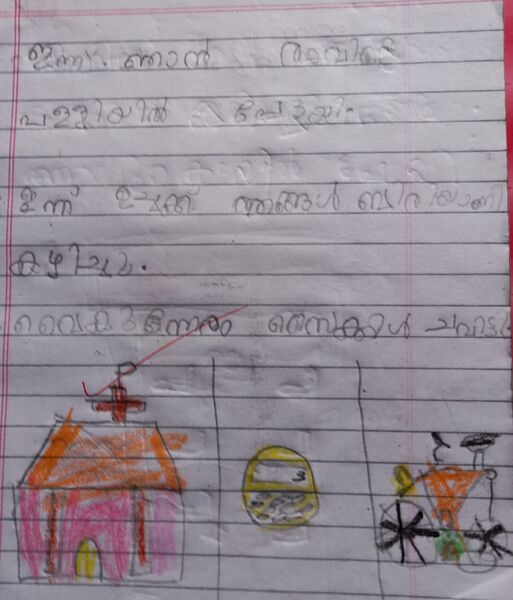 ഇന്ന് ഞാൻ രാവിലെ
പള്ളിയിൽ പോയി.
ഇന്ന് ഉച്ചക്ക് ഞങ്ങൾ ബിരിയാണി
കഴിച്ചു.
വൈകുന്നേരം സൈക്കിൾ ചവിട്ടി